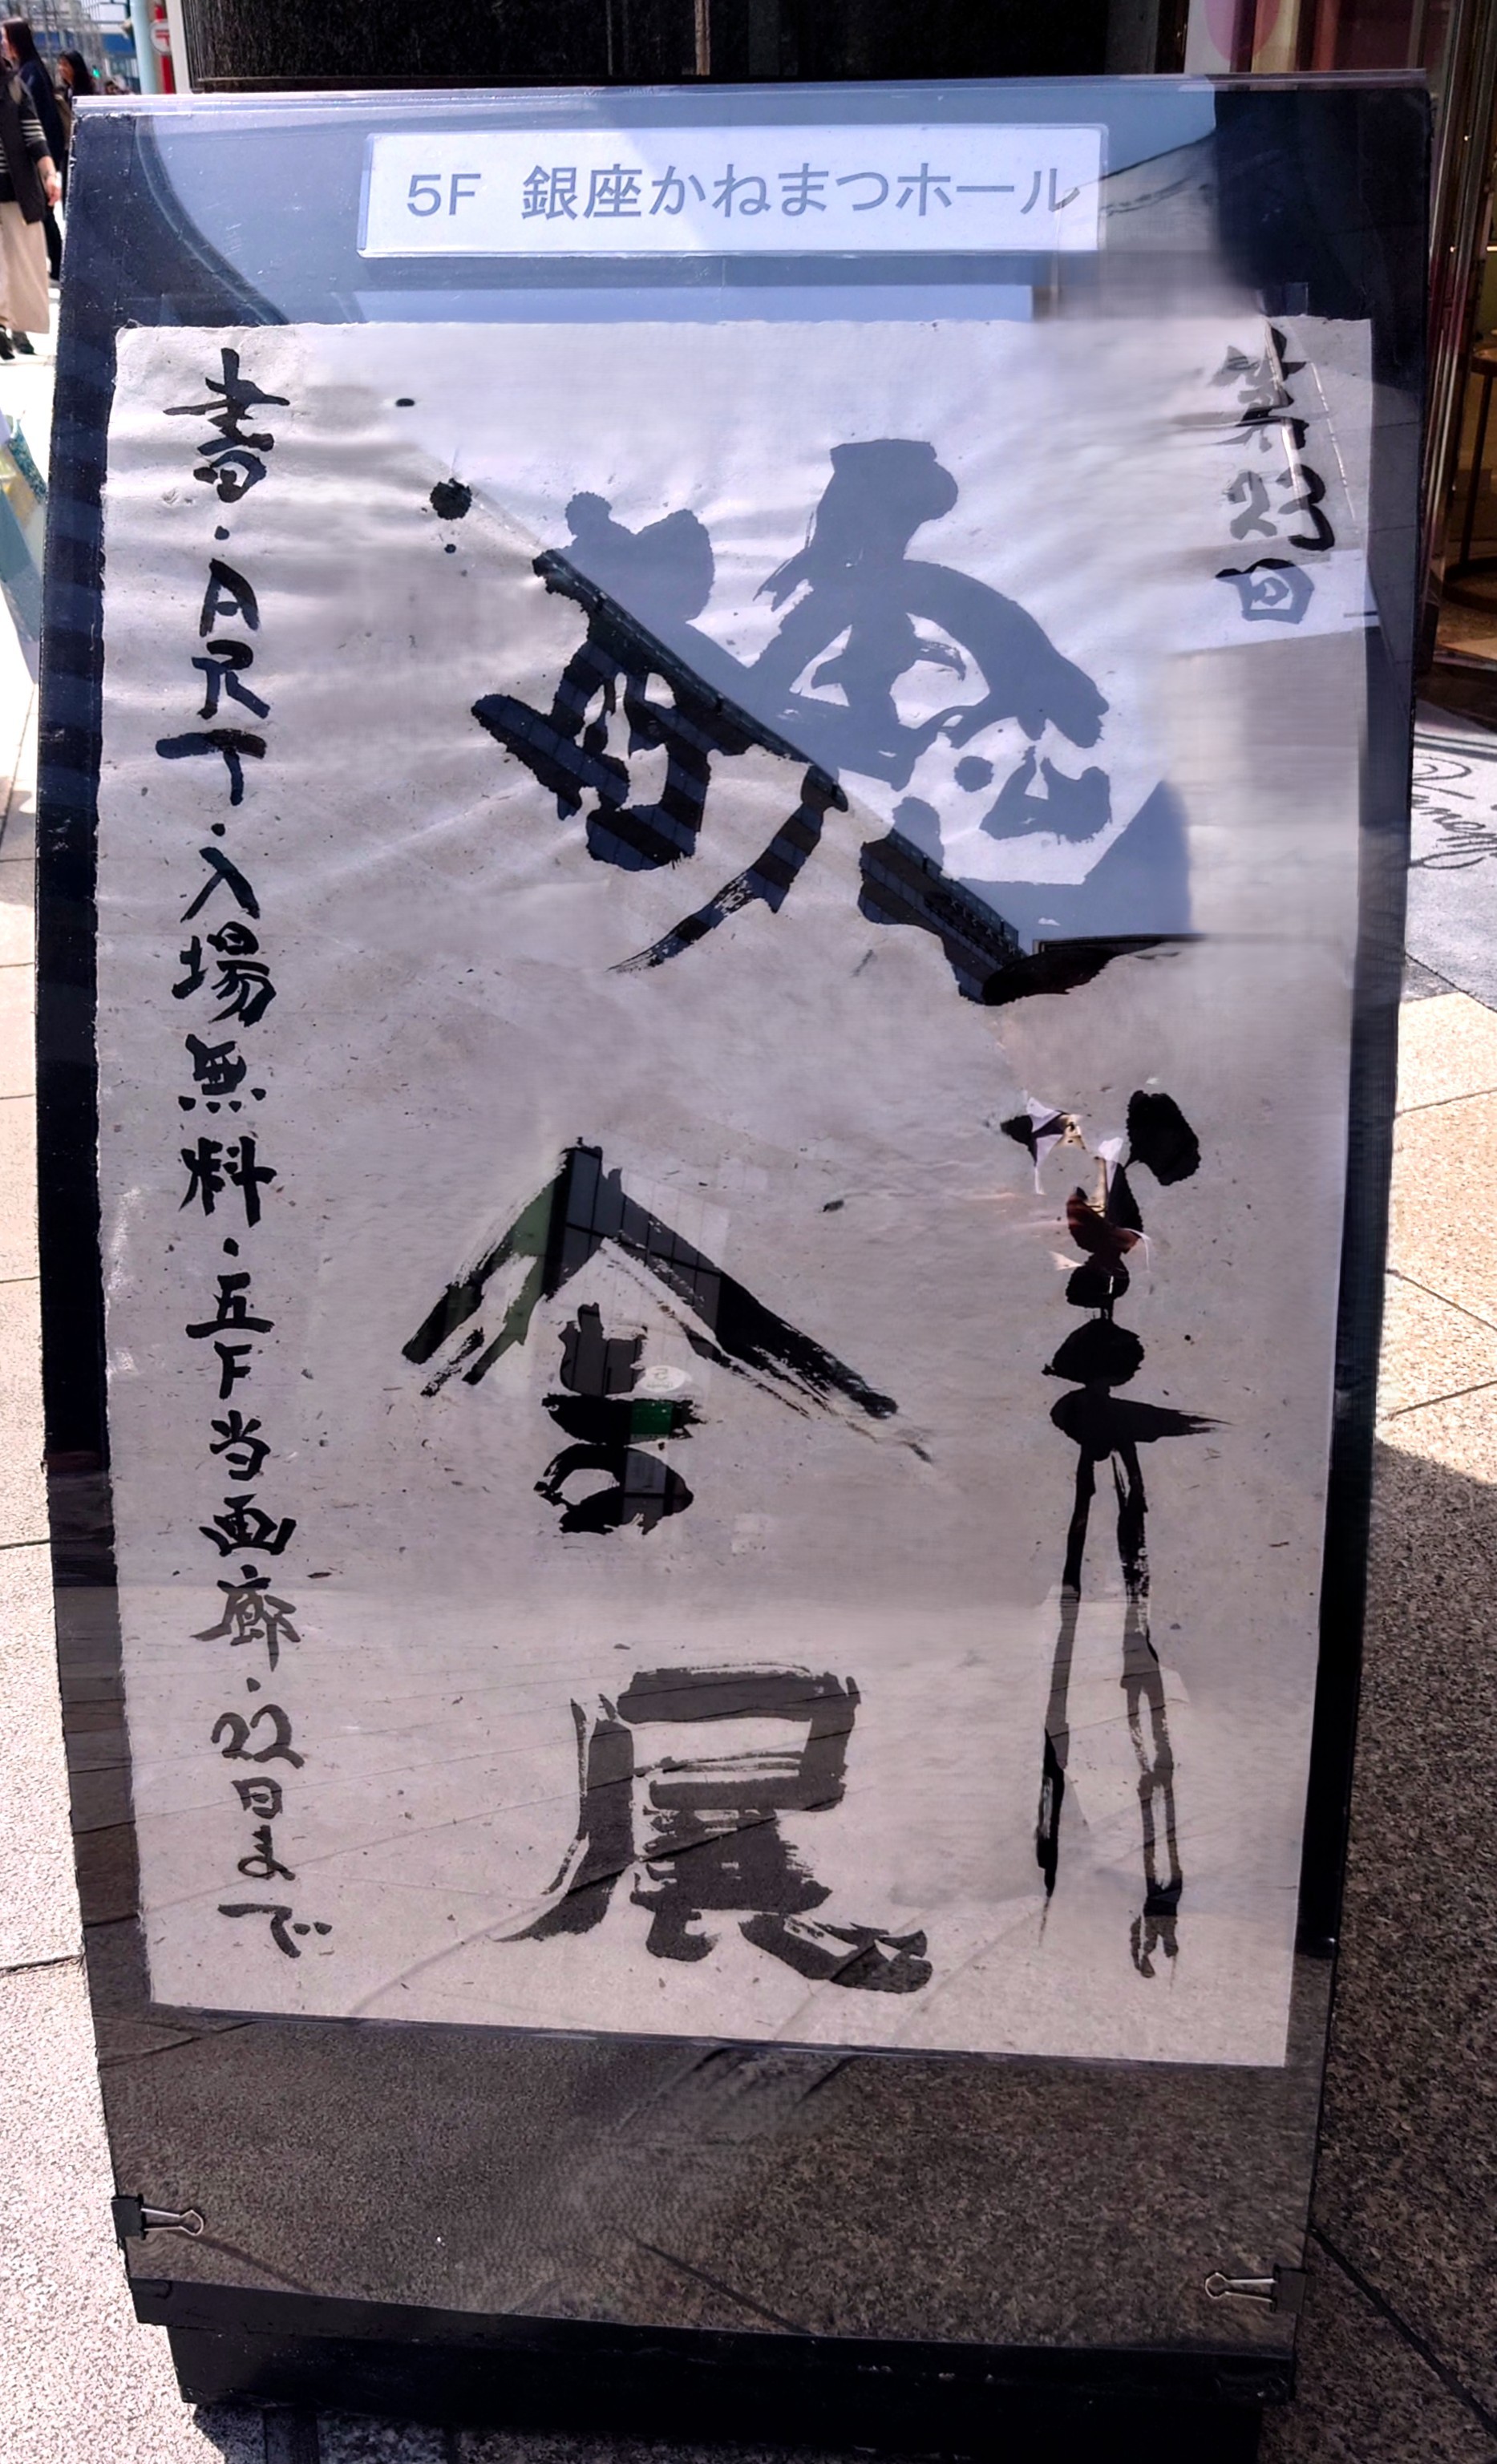 5F 銀座かねまつホール
第23回
會展
書・ART・入場無料・五F当画廊・22日まで